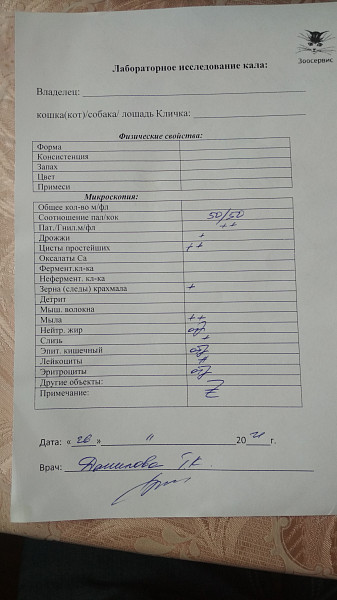 Зоосервис
Лабораторное исследование кала:
Владелец:
кошка(кот)/собака/ лошадь Кличка:
Физические свойства:
Форма
Консистенция
Запах
Цвет
Примеси
Микроскопия:
Общее кол-во м/фл
Соотношение пал/кок 50/50
Пат./Гнил.м/фл ++
Дрожжи +
Цисты простейших ++
Оксалаты Са
Фермент.кл-ка
Нефермент. кл-ка
Зерна (следы) крахмала +
Детрит
Мыш. волокна
Мыла ++
Нейтр. жир
Слизь +
Эпит. кишечный
Лейкоциты
Эритроциты
Другие объекты:
Примечание:
Дата: « 20 » " 20 21 г.
Врач: Данилова Т.К.